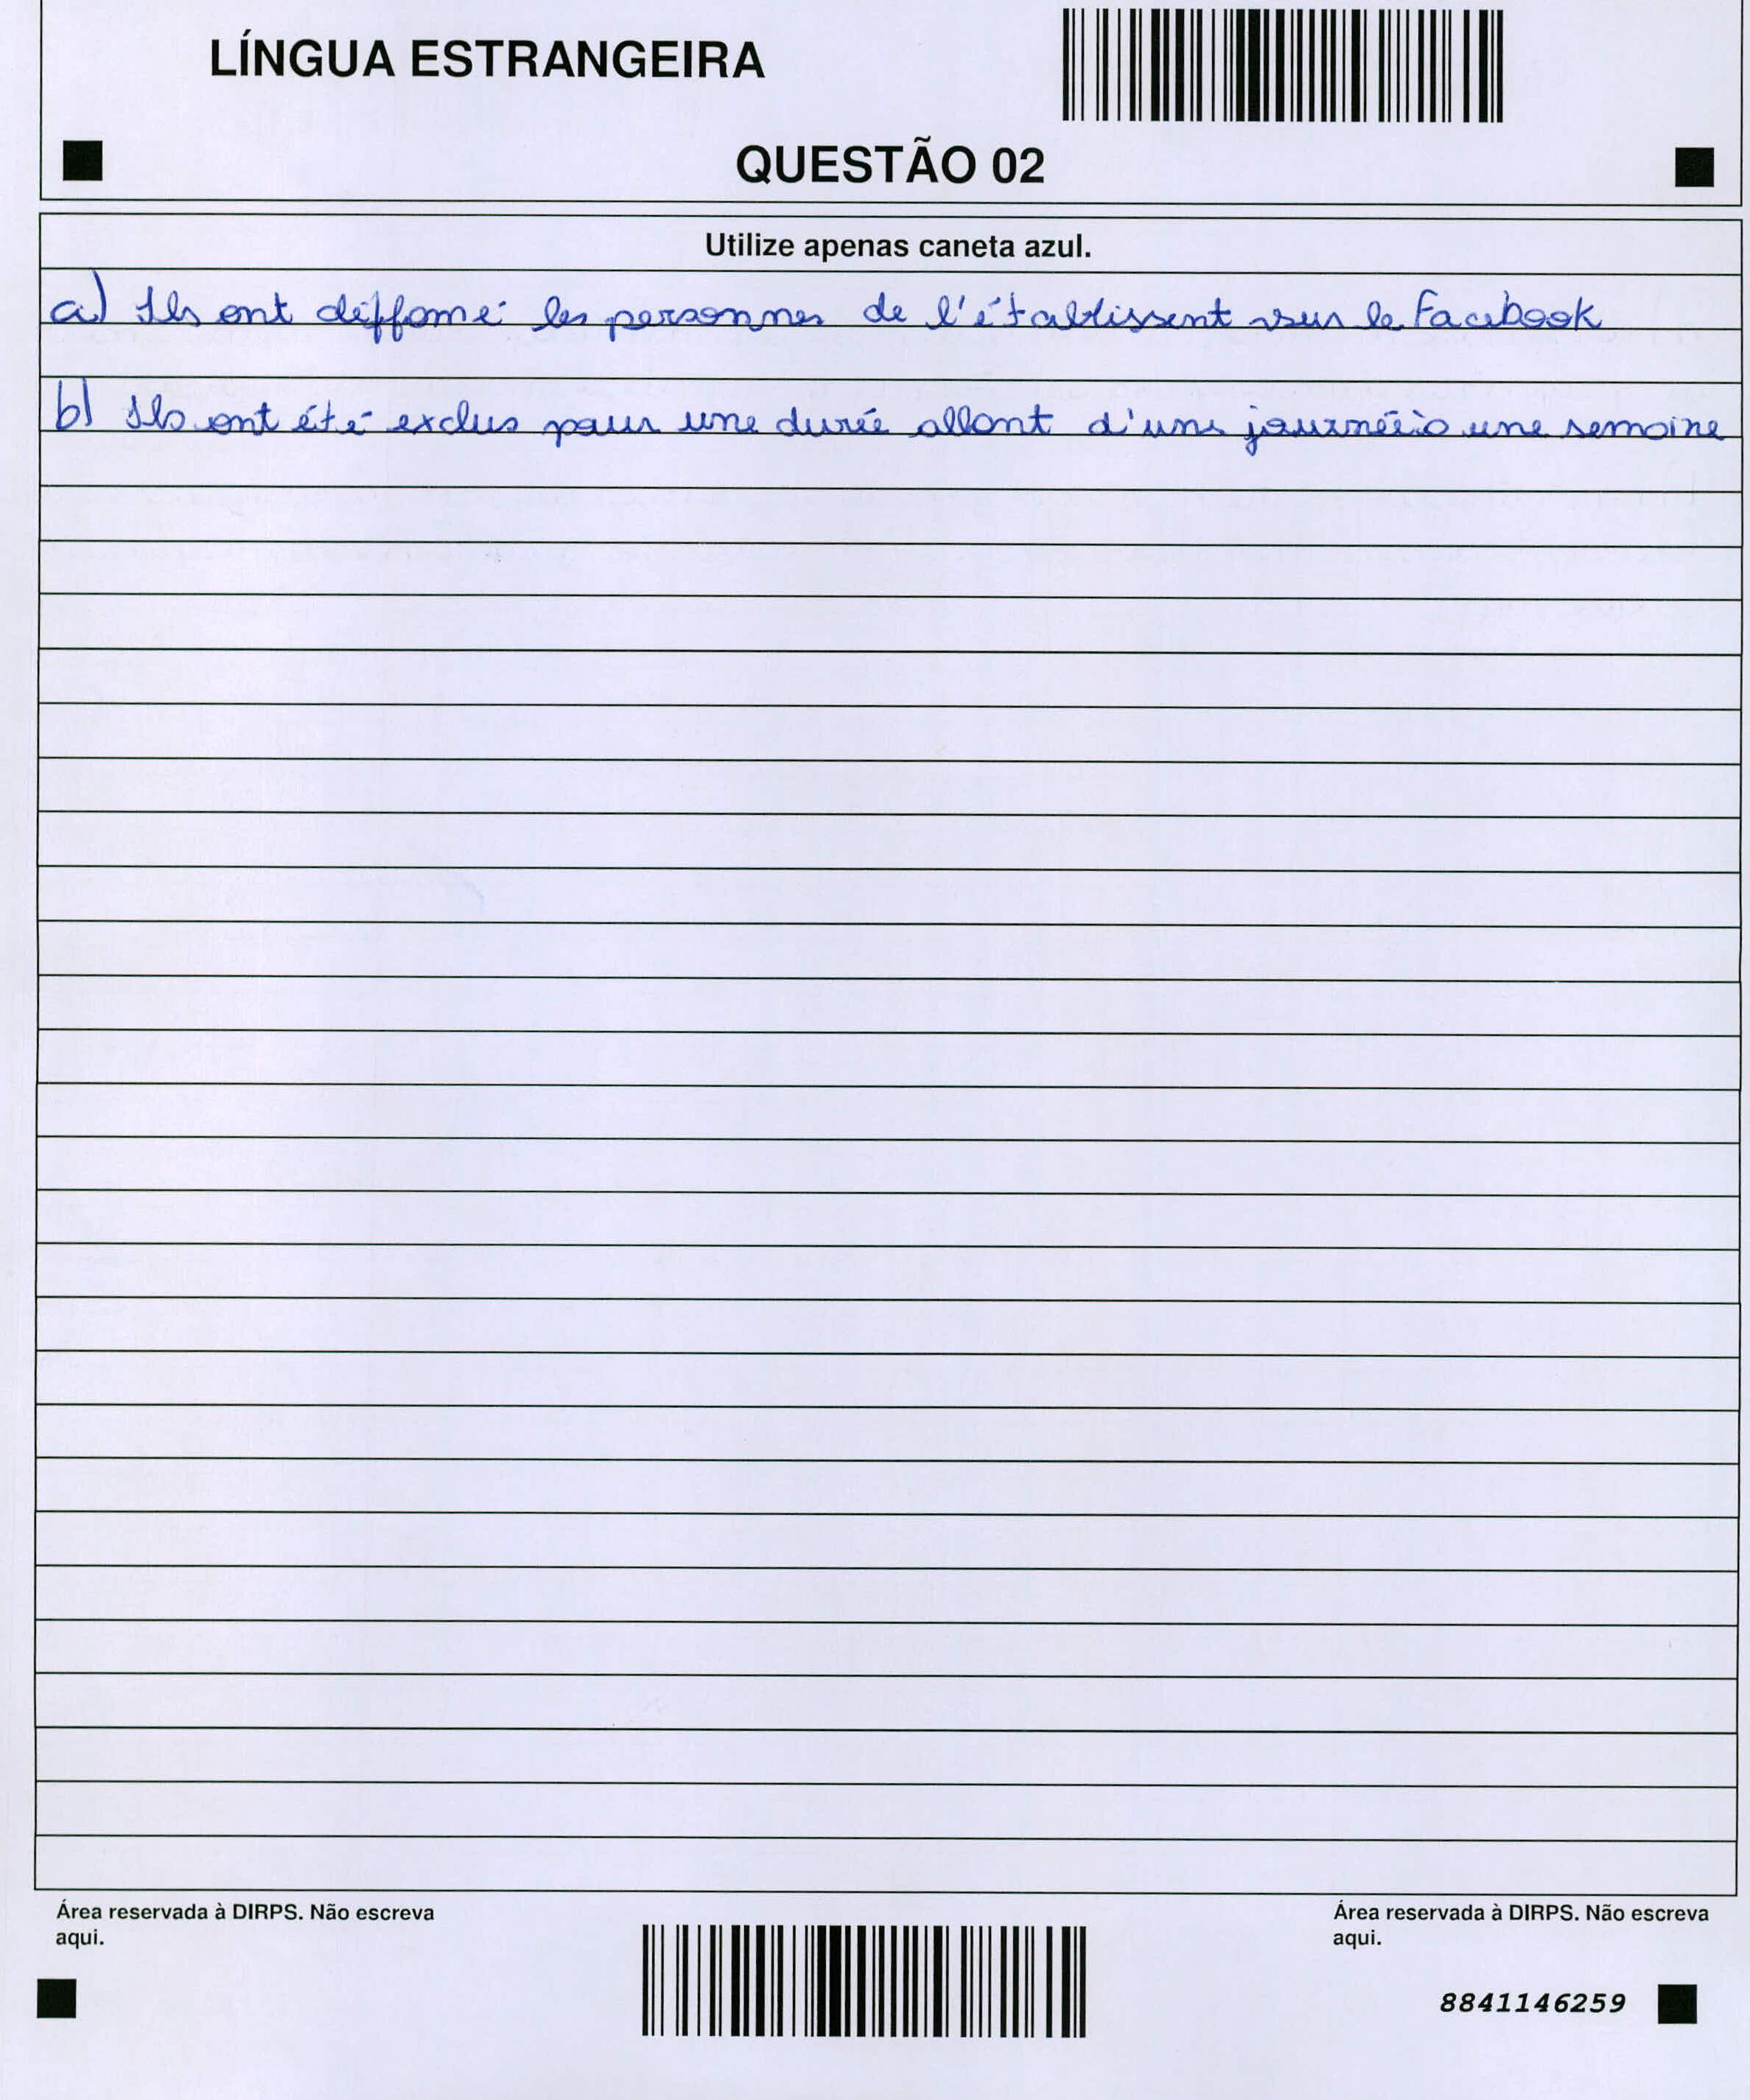 LÍNGUA ESTRANGEIRA
QUESTÃO 02
Utilize apenas caneta azul.
a) Ils ont diffamé les personnes de l'établissent sur le Facebook
b) Ils ont été exclus pour une durée allant d'une journéeà une semaine
Área reservada à DIRPS. Não escreva aqui.
Área reservada à DIRPS. Não escreva aqui.
8841146259